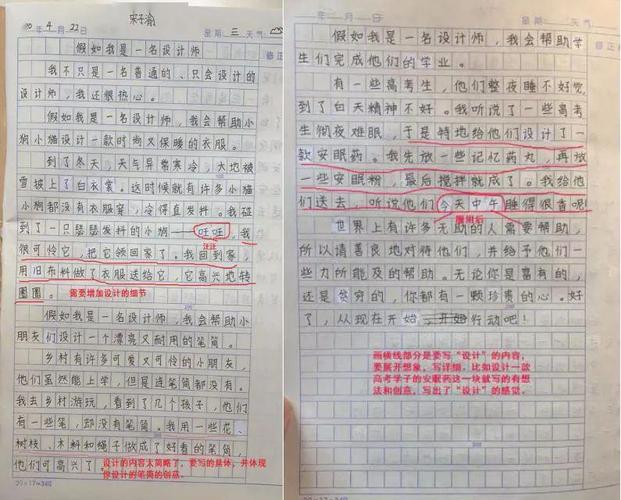 宋子渝
4月22日 星期三 天气
假如我是一名设计师
我不只是一名普通的、只会设计的
设计师，我还很热心。
假如我是一名设计师，我会帮助小
狗小猫设计一款时尚又保暖的衣服。
到了冬天，天气异常寒冷，大地被
雪披上了白衣裳。这时候就有许多小猫
小狗都没有衣服穿，冷得直发抖。我碰
到了一只瑟瑟发抖的小狗——旺旺，我
汪汪
很可怜它，把它领回家了。我回到家，
用旧布料做了衣服送给它，它高兴地转
圈圈。
需要增加设计的细节
假如我是一名设计师，我会帮助小
朋友们设计一个漂亮又耐用的笔筒。
乡村有许多可爱又可怜的小朋友，
他们虽然能上学，但是连笔筒都没有。
我去乡村游玩，看到了几个孩子，他们
有一些笔，却没有笔筒。我用一些花、
树枝、木料和绳子做成了好看的笔筒，
他们可高兴了。
设计的内容太简略了，要写的具体，并体现
你设计的笔筒的创意。
20×17=340
年 月 日 星期 天气
假如我是一名设计师，我会帮助学
生们完成他们的学业。
有一些高考生，他们整夜睡不好觉
到了白天精神不好。我听说了一些高考
生彻夜难眠，于是特地给他们设计了一
款安眠药。我先放一些记忆药丸，再放
一些安眠粉，最后搅拌就成了。我给他
们送去，听说他们今天中午睡得很香呢！
服用后
世界上有许多无助的人需要帮助，
所以请善良地对待他们，并给予他们一
些力所能及的帮助。无论你是富有的，
还是贫穷的，你都有一颗珍贵的心。好
了，从现在开始，开始行动吧！
画横线部分是要写“设计”的内容，
要展开想象，写详细。比如设计一款
高考学子的安眠药这一块就写的有想
法和创意，写出了“设计”的感觉。